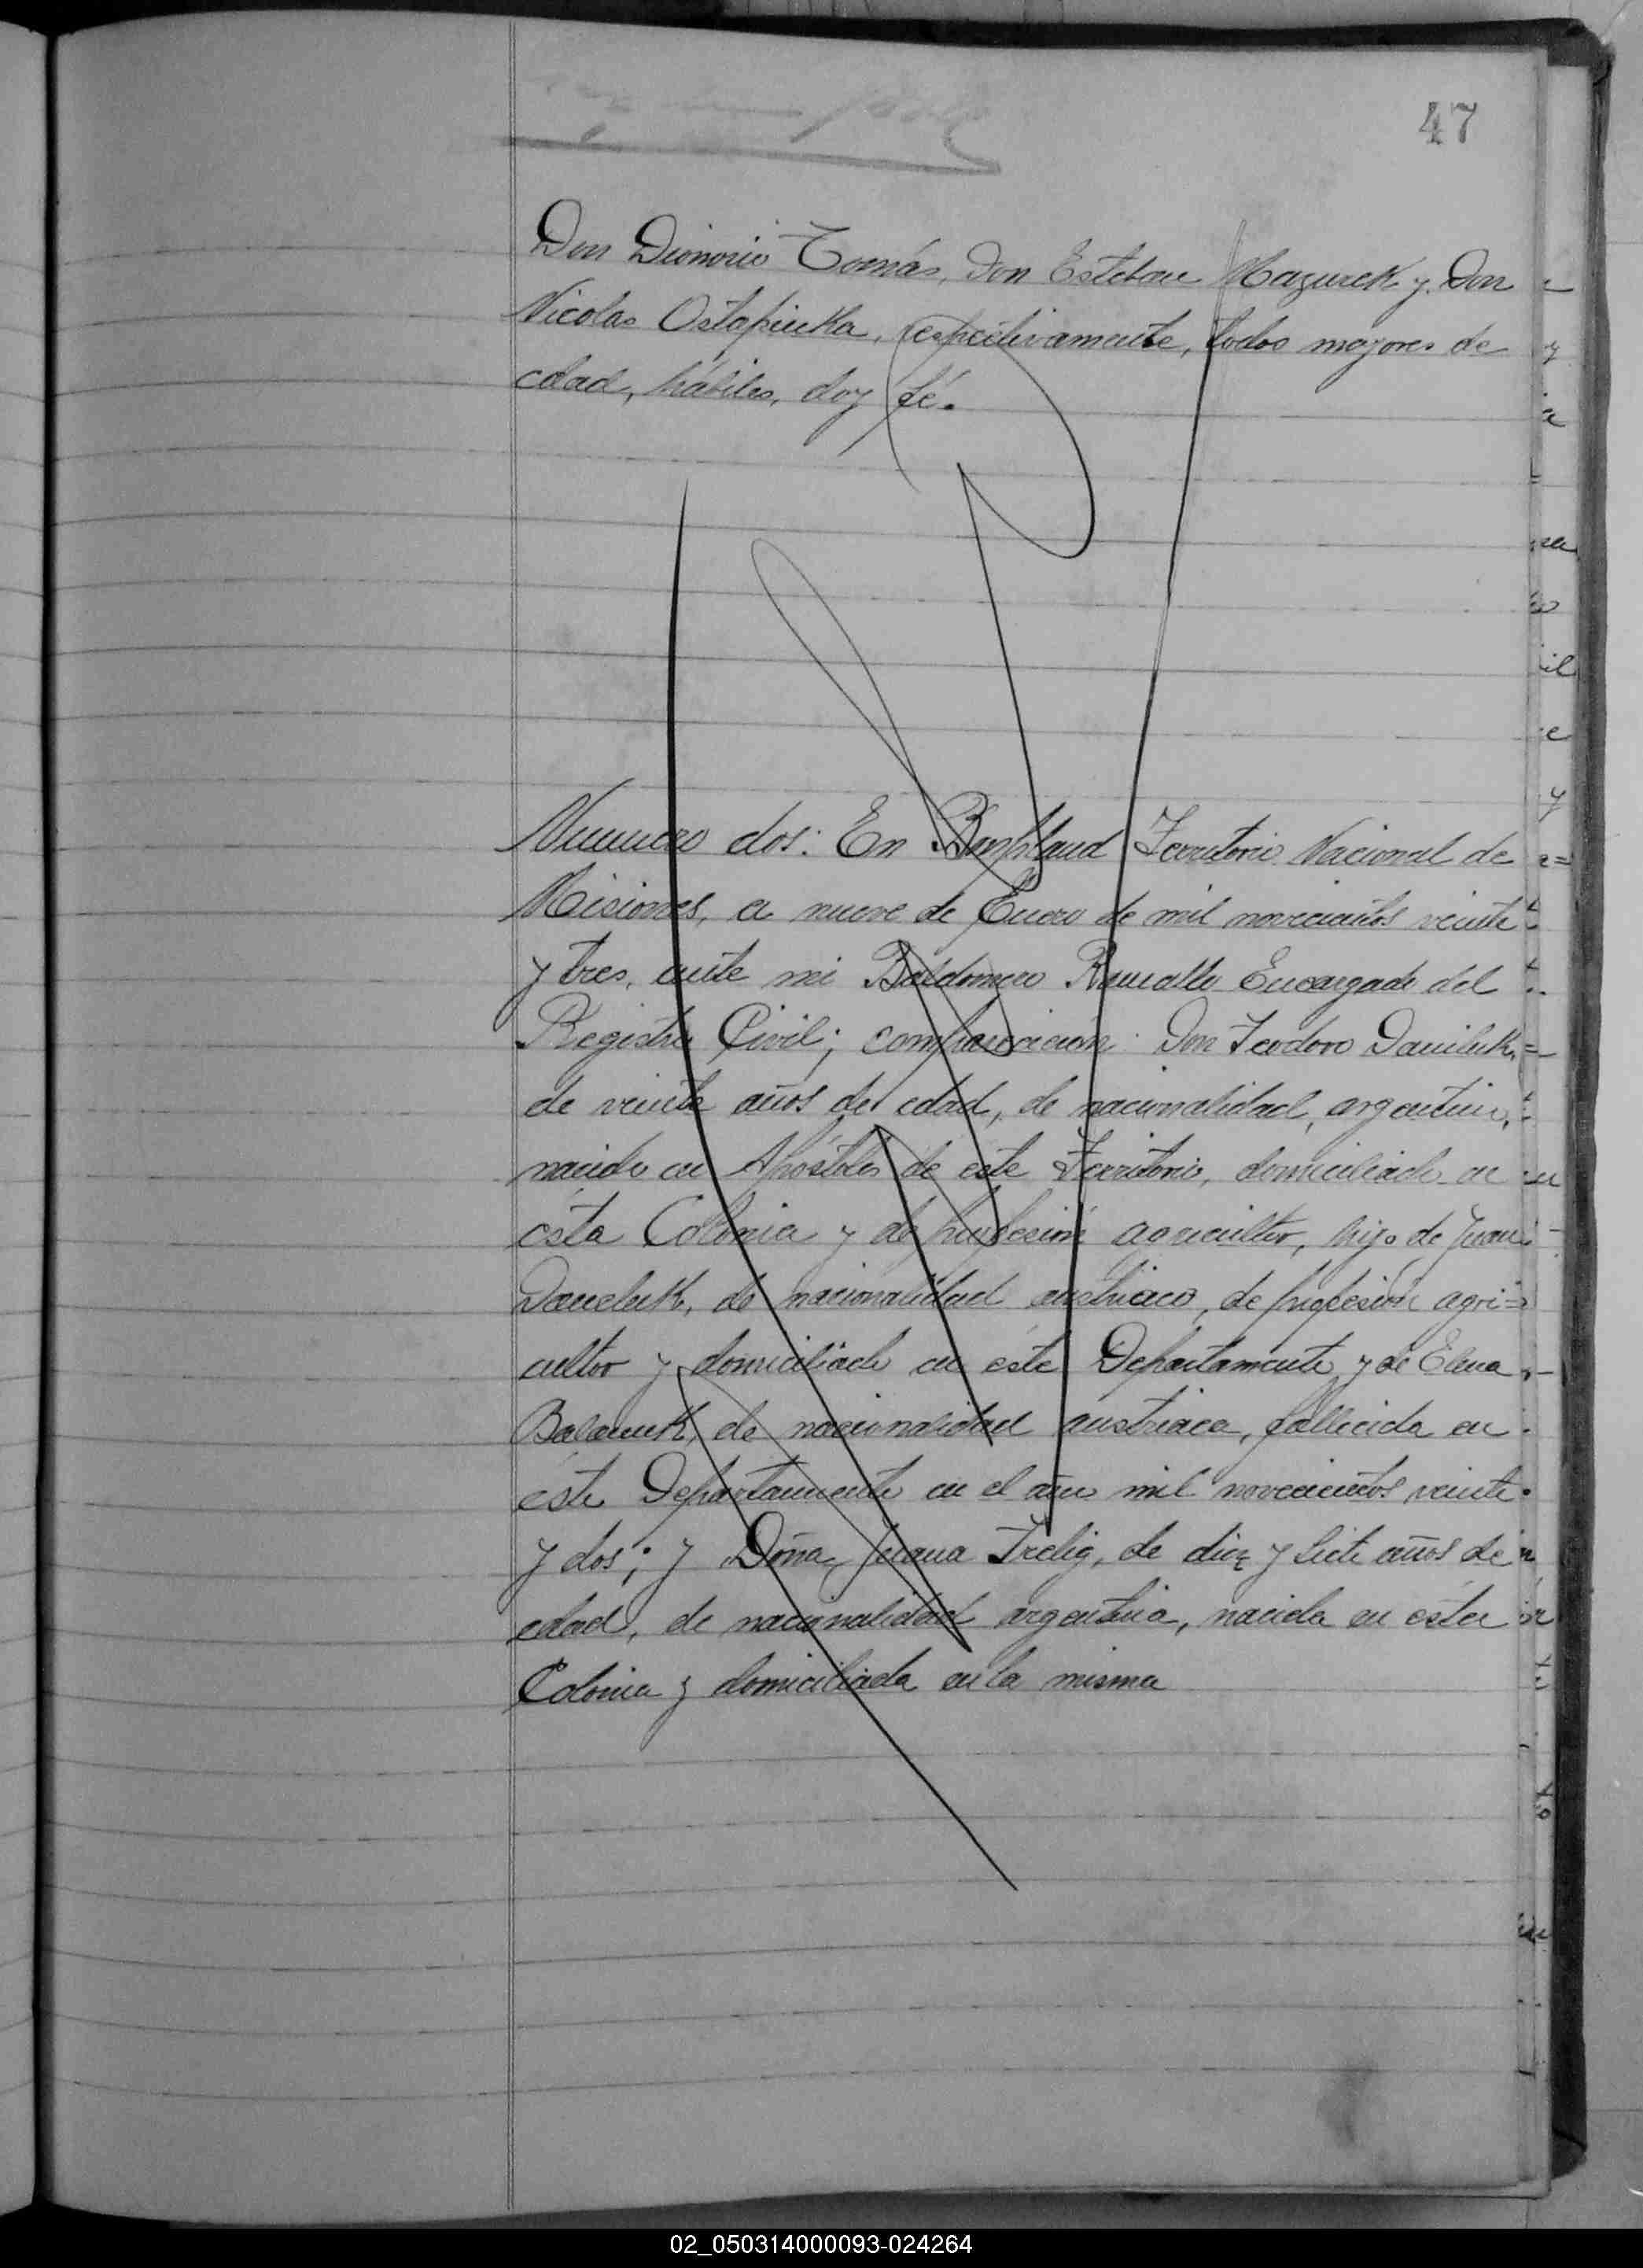 47
Don Dionisio Tomás, Don Esteban Mazurek y Don
Nicolas Ostapiuka, respectivamente, todos mayores de
edad, hábiles, doy fé.
Numero dos: En Bompland Territorio Nacional de
Misiones, a nueve de Enero de mil novecientos veinte
y tres, ante mi Baldomero Encargado del
Registro Civil; comparecieron: Don Teodoro Daniluk,
de veinte años de edad, de nacionalidad, argentino,
nacido en Apóstoles de este Territorio, domiciliado en
ésta Colonia y de profesión agricultor, hijo de Juan
Daneluk, de nacionalidad austriaco, de profesión agri=
cultor y domiciliado en éste Departamento y de Elena
de nacionalidad austriaca, fallecida en
éste Departamento en el año mil novecientos veinte
y dos; y Doña Juana Trelig, de diez y siete años de
edad, de nacionalidad argentina, nacida en ésta
Colonia y domiciliada en la misma
02_050314000093-024264